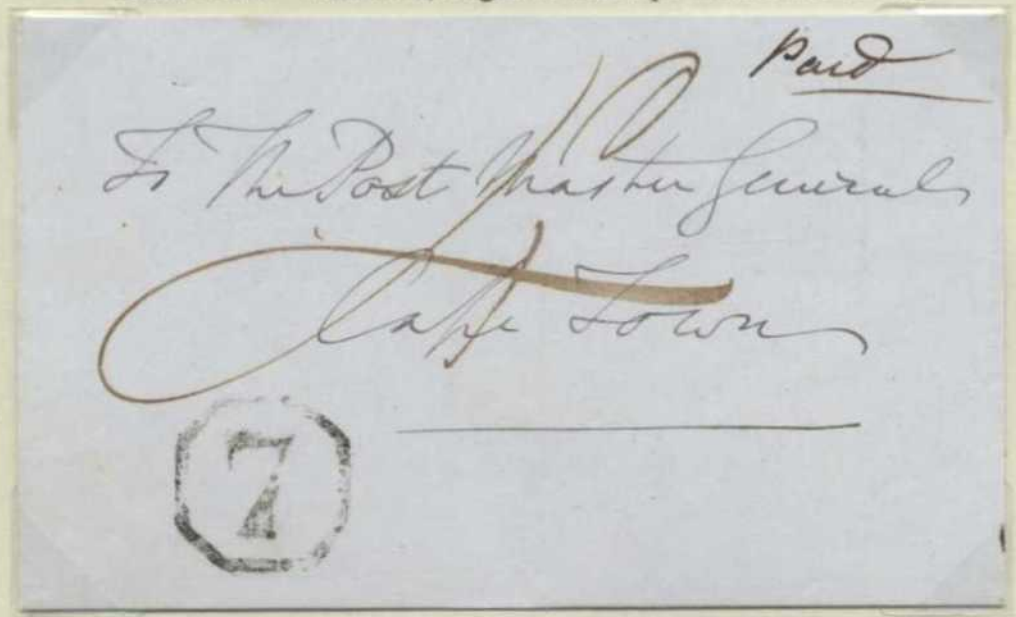 Paid
To The Post Master General
Cape Town
7